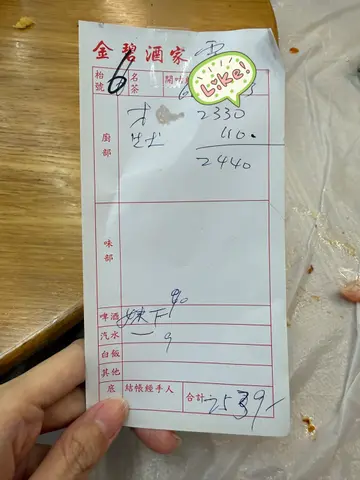 金碧酒家
枱號 6 名茶 開 Like!
廚部 2330
110.
2440
味部
啤酒 90
汽水 一 9
白飯
其他
底 結帳經手人 合計 2539-